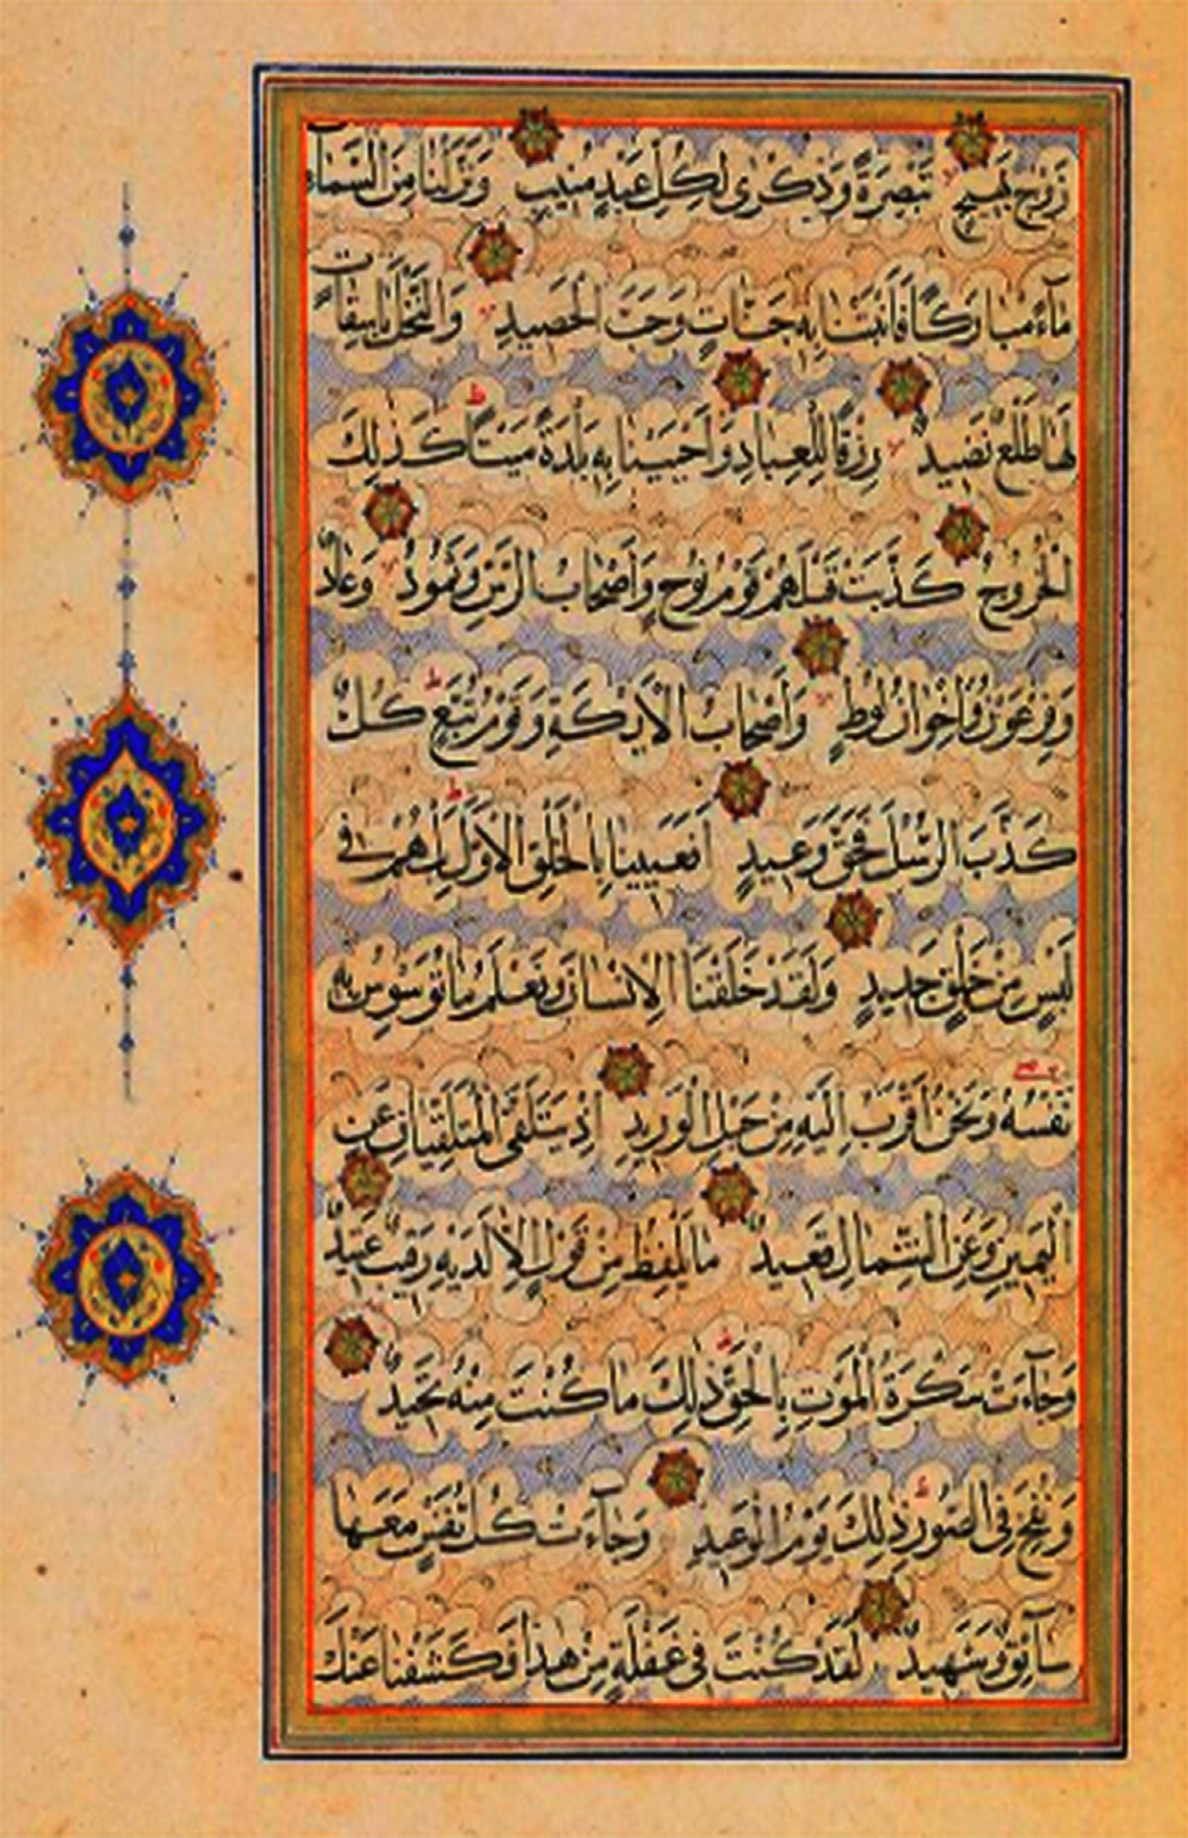 زَوْجٍ بَهِيجٍ تَبْصِرَةً وَذِكْرٰى لِكُلِّ عَبْدٍ مُنِيبٍ وَنَزَّلْنَا مِنَ السَّمَاءِ
مَآءً مُبَارَكًا فَأَنْبَتْنَا بِهِ جَنَّاتٍ وَحَبَّ الْحَصِيدِ وَالنَّخْلَ بَاسِقَاتٍ
لَهَا طَلْعٌ نَضِيدٌ رِزْقًا لِلْعِبَادِ وَأَحْيَيْنَا بِهِ بَلْدَةً مَيْتًا كَذٰلِكَ
الْخُرُوجُ كَذَّبَتْ قَبْلَهُمْ قَوْمُ نُوحٍ وَأَصْحَابُ الرَّسِّ وَثَمُودُ وَعَادٌ
وَفِرْعَوْنُ وَإِخْوَانُ لُوطٍ وَأَصْحَابُ الْأَيْكَةِ وَقَوْمُ تُبَّعٍ كُلٌّ
كَذَّبَ الرُّسُلَ فَحَقَّ وَعِيدِ أَفَعَيِينَا بِالْخَلْقِ الْأَوَّلِ بَلْ هُمْ فِي
لَبْسٍ مِنْ خَلْقٍ جَدِيدٍ وَلَقَدْ خَلَقْنَا الْإِنْسَانَ وَنَعْلَمُ مَا تُوَسْوِسُ بِهِ
نَفْسُهُ وَنَحْنُ أَقْرَبُ إِلَيْهِ مِنْ حَبْلِ الْوَرِيدِ إِذْ يَتَلَقَّى الْمُتَلَقِّيَانِ عَنِ
الْيَمِينِ وَعَنِ الشِّمَالِ قَعِيدٌ مَا يَلْفِظُ مِنْ قَوْلٍ إِلَّا لَدَيْهِ رَقِيبٌ عَتِيدٌ
وَجَآءَتْ سَكْرَةُ الْمَوْتِ بِالْحَقِّ ذٰلِكَ مَا كُنْتَ مِنْهُ تَحِيدُ
وَنُفِخَ فِي الصُّورِ ذٰلِكَ يَوْمُ الْوَعِيدِ وَجَآءَتْ كُلُّ نَفْسٍ مَعَهَا
سَآئِقٌ وَشَهِيدٌ لَقَدْ كُنْتَ فِي غَفْلَةٍ مِنْ هٰذَا فَكَشَفْنَا عَنْكَ